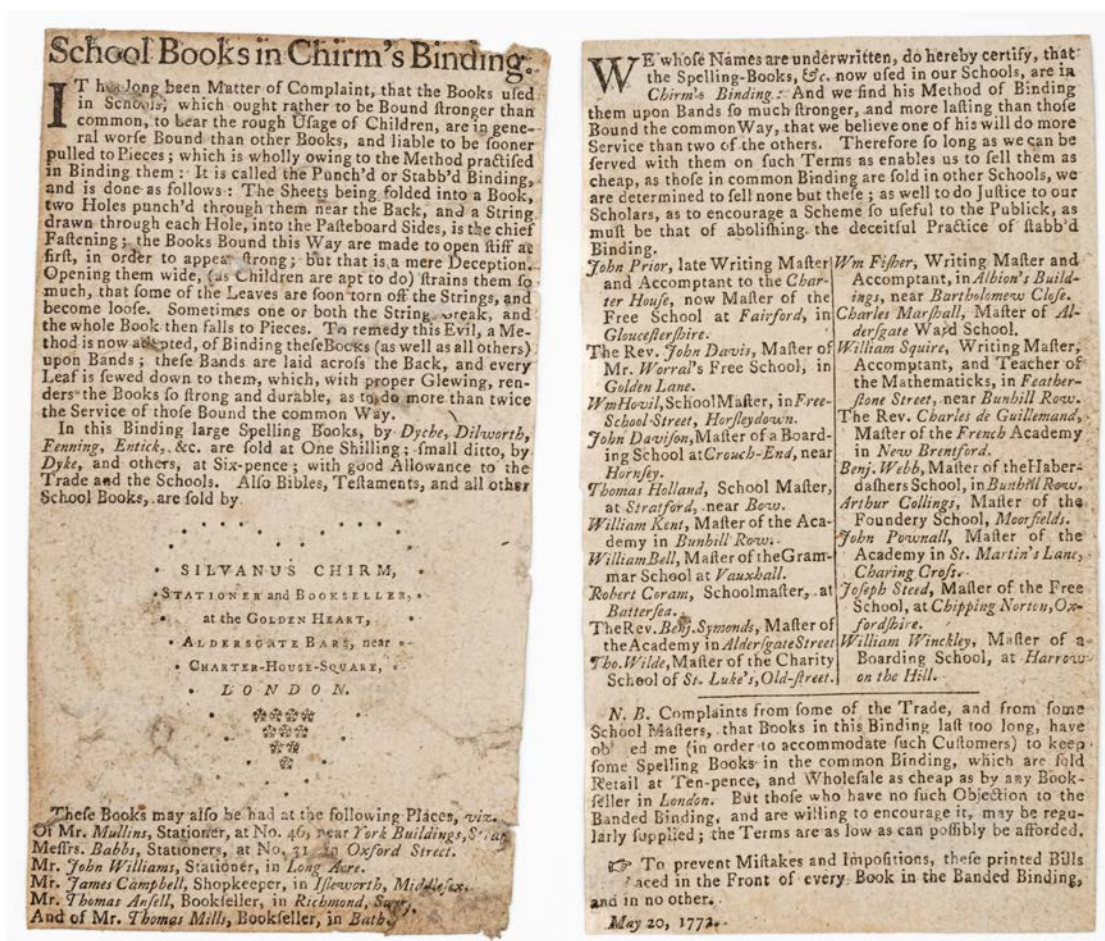 School Books in Chirm's Binding.
IT has long been Matter of Complaint, that the Books uſed
in Schools, which ought rather to be Bound ſtronger than
common, to bear the rough Uſage of Children, are in gene-
ral worſe Bound than other Books, and liable to be ſooner
pulled to Pieces; which is wholly owing to the Method practiſed
in Binding them: It is called the Punch'd or Stabb'd Binding,
and is done as follows: The Sheets being folded into a Book,
two Holes punch'd through them near the Back, and a String
drawn through each Hole, into the Paſteboard Sides, is the chief
Faſtening; the Books Bound this Way are made to open ſtiff at
firſt, in order to appear ſtrong; but that is a mere Deception.
Opening them wide, (as Children are apt to do) ſtrains them ſo
much, that ſome of the Leaves are ſoon torn off the Strings, and
become looſe. Sometimes one or both the String break, and
the whole Book then falls to Pieces. To remedy this Evil, a Me-
thod is now adopted, of Binding theſe Books (as well as all others)
upon Bands; theſe Bands are laid acroſs the Back, and every
Leaf is ſewed down to them, which, with proper Glewing, ren-
ders the Books ſo ſtrong and durable, as to do more than twice
the Service of thoſe Bound the common Way.
In this Binding large Spelling Books, by Dyche, Dilworth,
Fenning, Entick, &c. are ſold at One Shilling; ſmall ditto, by
Dyke, and others, at Six-pence; with good Allowance to the
Trade and the Schools. Alſo Bibles, Teſtaments, and all other
School Books, are ſold by
SILVANUS CHIRM,
STATIONER and BOOKSELLER,
at the GOLDEN HEART,
ALDERSGATE BARS, near
CHARTER-HOUSE-SQUARE,
LONDON.
Theſe Books may alſo be had at the following Places, viz.
Of Mr. Mullins, Stationer, at No. 46, near York Buildings,
Meſſrs. Babbs, Stationers, at No. 31 in Oxford Street.
Mr. John Williams, Stationer, in Long Acre.
Mr. James Campbell, Shopkeeper, in Iſleworth, Middleſex.
Mr. Thomas Anſell, Bookſeller, in Richmond,
And of Mr. Thomas Mills, Bookſeller, in Bath.
WE whoſe Names are underwritten, do hereby certify, that
the Spelling-Books, &c. now uſed in our Schools, are in
Chirm's Binding: And we find his Method of Binding
them upon Bands ſo much ſtronger, and more laſting than thoſe
Bound the common Way, that we believe one of his will do more
Service than two of the others. Therefore ſo long as we can be
ſerved with them on ſuch Terms as enables us to ſell them as
cheap, as thoſe in common Binding are ſold in other Schools, we
are determined to ſell none but theſe; as well to do Juſtice to our
Scholars, as to encourage a Scheme ſo uſeful to the Publick, as
muſt be that of aboliſhing the deceitful Practice of ſtabb'd
Binding.
John Prior, late Writing Maſter
and Accomptant to the Char-
ter Houſe, now Maſter of the
Free School at Fairford, in
Glouceſterſhire.
The Rev. John Davis, Maſter of
Mr. Worral's Free School, in
Golden Lane.
Wm Hovil, School Maſter, in Free-
School-Street, Horſleydown.
John Daviſon, Maſter of a Board-
ing School at Crouch-End, near
Hornſey.
Thomas Holland, School Maſter,
at Stratford, near Bow.
William Kent, Maſter of the Aca-
demy in Bunhill Row.
William Bell, Maſter of the Gram-
mar School at Vauxhall.
Robert Coram, Schoolmaſter, at
Batterſea.
The Rev. Benj. Symonds, Maſter of
the Academy in Alderſgate Street
Tho. Wilde, Maſter of the Charity
School of St. Luke's, Old-ſtreet.
Wm Fiſher, Writing Maſter and
Accomptant, in Albion's Build-
ings, near Bartholomew Cloſe.
Charles Marſhall, Maſter of Al-
derſgate Ward School.
William Squire, Writing Maſter,
Accomptant, and Teacher of
the Mathematicks, in Feather-
ſtone Street, near Bunhill Row.
The Rev. Charles de Guillemand,
Maſter of the French Academy
in New Brentford.
Benj. Webb, Maſter of the Haber-
daſhers School, in Bunhill Row.
Arthur Collings, Maſter of the
Foundery School, Moorfields.
John Pownall, Maſter of the
Academy in St. Martin's Lane,
Charing Croſs.
Joſeph Steed, Maſter of the Free
School, at Chipping Norton, Ox-
fordſhire.
William Winckley, Maſter of a
Boarding School, at Harrow
on the Hill.
N. B. Complaints from ſome of the Trade, and from ſome
School Maſters, that Books in this Binding laſt too long, have
ob ed me (in order to accommodate ſuch Cuſtomers) to keep
ſome Spelling Books in the common Binding, which are ſold
Retail at Ten-pence, and Wholeſale as cheap as by any Book-
ſeller in London. But thoſe who have no ſuch Objection to the
Banded Binding, and are willing to encourage it, may be regu-
larly ſupplied; the Terms are as low as can poſſibly be afforded.
☞ To prevent Miſtakes and Impoſitions, theſe printed Bills
aced in the Front of every Book in the Banded Binding,
and in no other.
May 20, 1773.